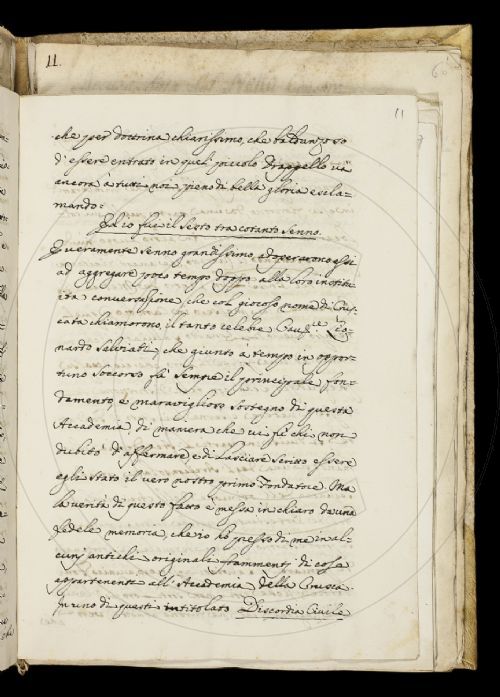 11.
11
che per dottrina chiarissimo, che baldanzoso
d'essere entrato in quel piccolo Drappello va
ancora a tutti noi pieno di bella gloria escla-
mando:
Ed io fui il Sesto tra cotanto Senno.
E veramente Senno grandissimo adoperarono essi
ad aggregare poco tempo doppo alla loro institu
ita conversazione, che col giocoso nome di Crus
cata chiamorono, il tanto celebre Caval.re Lio
nardo Salviati, che giunto a tempo in oppor-
tuno soccorso fù Sempre il principale fon-
damento, e maraviglioso sostegno di questa
Accademia di maniera che vi fù chi non
dubitò d'affermare e di lasciare scritto essere
egli stato il vero nostro primo Fondatore. Ma
la verità di questo fatto è messa in chiaro da una
fedele memoria, che io hò presso di me in al-
cuni antichi originali frammenti di cose
appartenenti all'Accademia della Crusca.
In uno di questi intitolato Discordia Civile